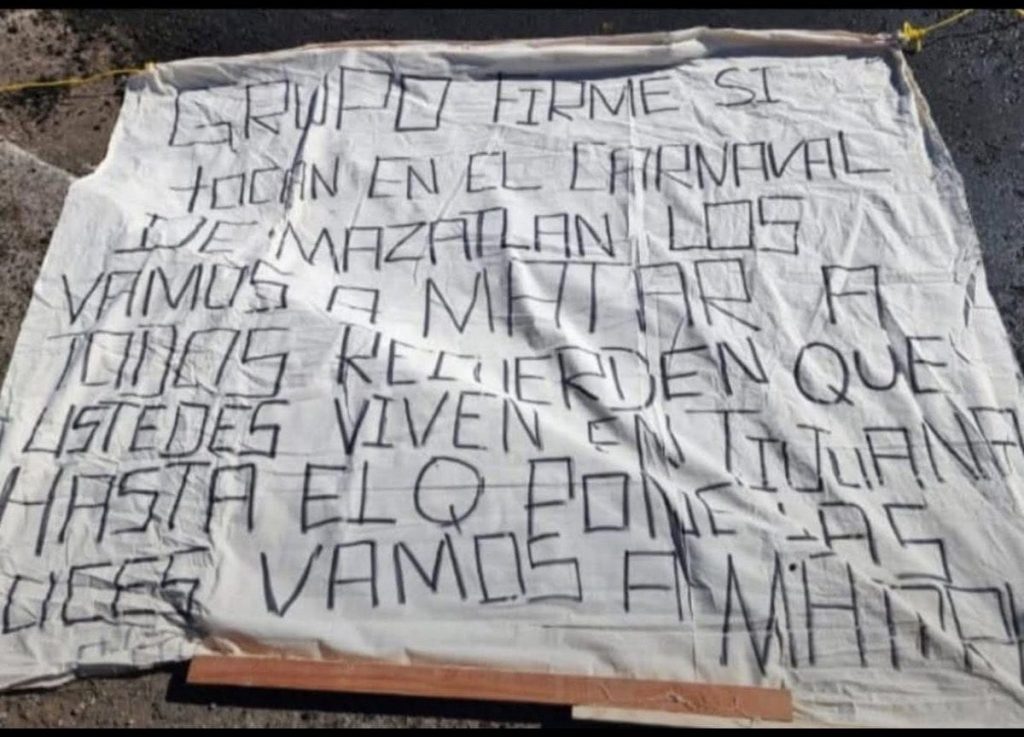 GRUPO FIRME SI
tOCAN EN EL CARNAVAL
DE MAZATLAN LOS
VAMOS A MATAR A
TODOS RECUERDEN QUE
USTEDES VIVEN EN TIJUANA
HASTA EL Q PONE LAS
LUCES VAMOS A MATAR